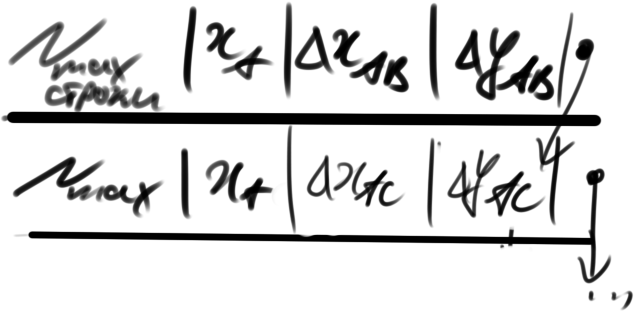 N max строки | x_A | Δx_AB | Δy_AB |
N max | x_A | Δx_AC | Δy_AC |
...